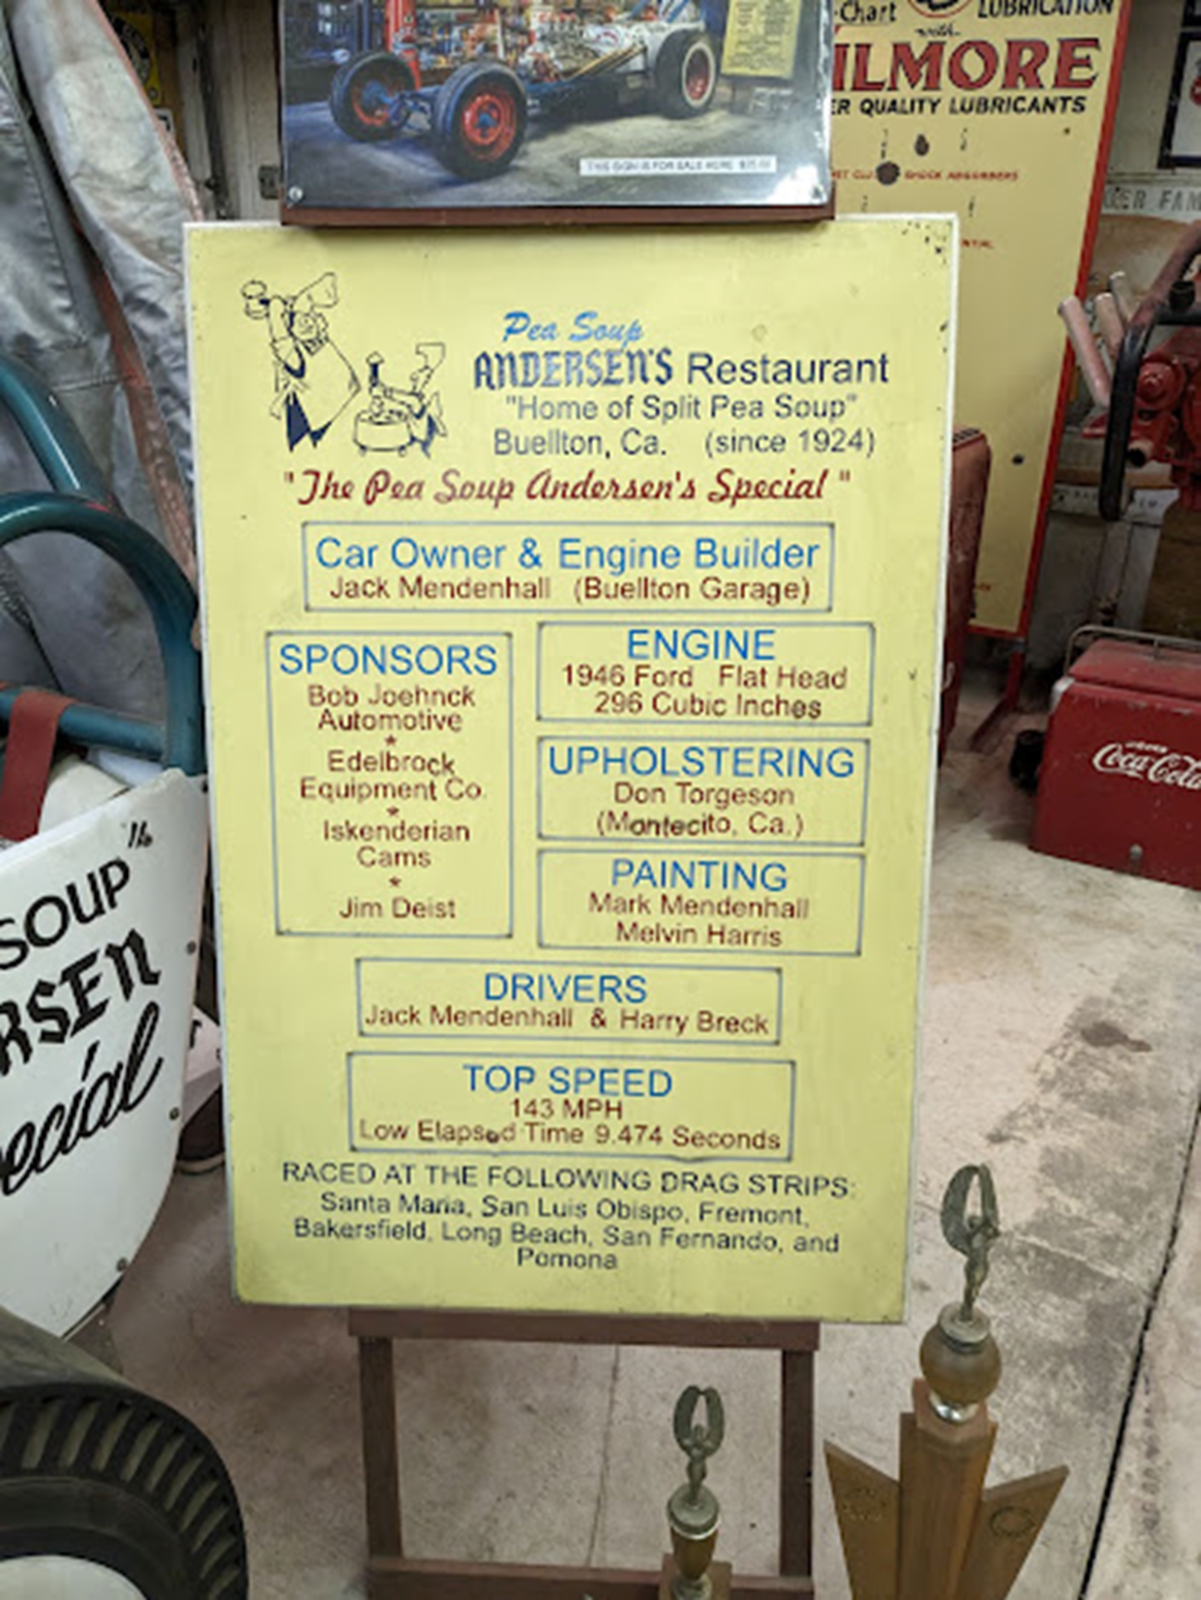 -Chart
LUBRICATION
with
ILMORE
ER QUALITY LUBRICANTS
SHOCK ABSORBERS
THIS SIGN IS FOR SALE HERE
Pea Soup
ANDERSEN'S Restaurant
"Home of Split Pea Soup"
Buellton, Ca. (since 1924)
"The Pea Soup Andersen's Special"
Car Owner & Engine Builder
Jack Mendenhall (Buellton Garage)
SPONSORS
Bob Joehnck
Automotive
*
Edelbrock
Equipment Co.
*
Iskenderian
Cams
*
Jim Deist
ENGINE
1946 Ford Flat Head
296 Cubic Inches
UPHOLSTERING
Don Torgeson
(Montecito, Ca.)
PAINTING
Mark Mendenhall
Melvin Harris
DRIVERS
Jack Mendenhall & Harry Breck
TOP SPEED
143 MPH
Low Elapsed Time 9.474 Seconds
RACED AT THE FOLLOWING DRAG STRIPS:
Santa Maria, San Luis Obispo, Fremont,
Bakersfield, Long Beach, San Fernando, and
Pomona
SOUP
RSEN
ecial
Coca-Cola